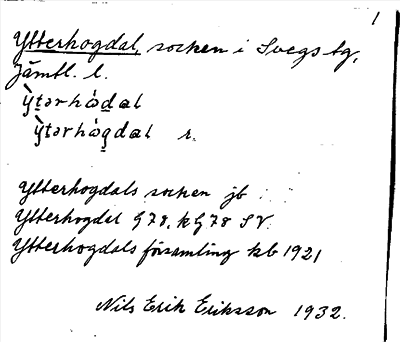 1
Ytterhogdal, socken i Svegs tg,
Jämtl. l.
ỳ̀tərhòdal
ỳ̀tərhògdal r.
Ytterhogdals socken jb
Ytterhogdal G78, kG78 SV.
Ytterhogdals församling kb 1921
Nils Erik Eriksson 1932.